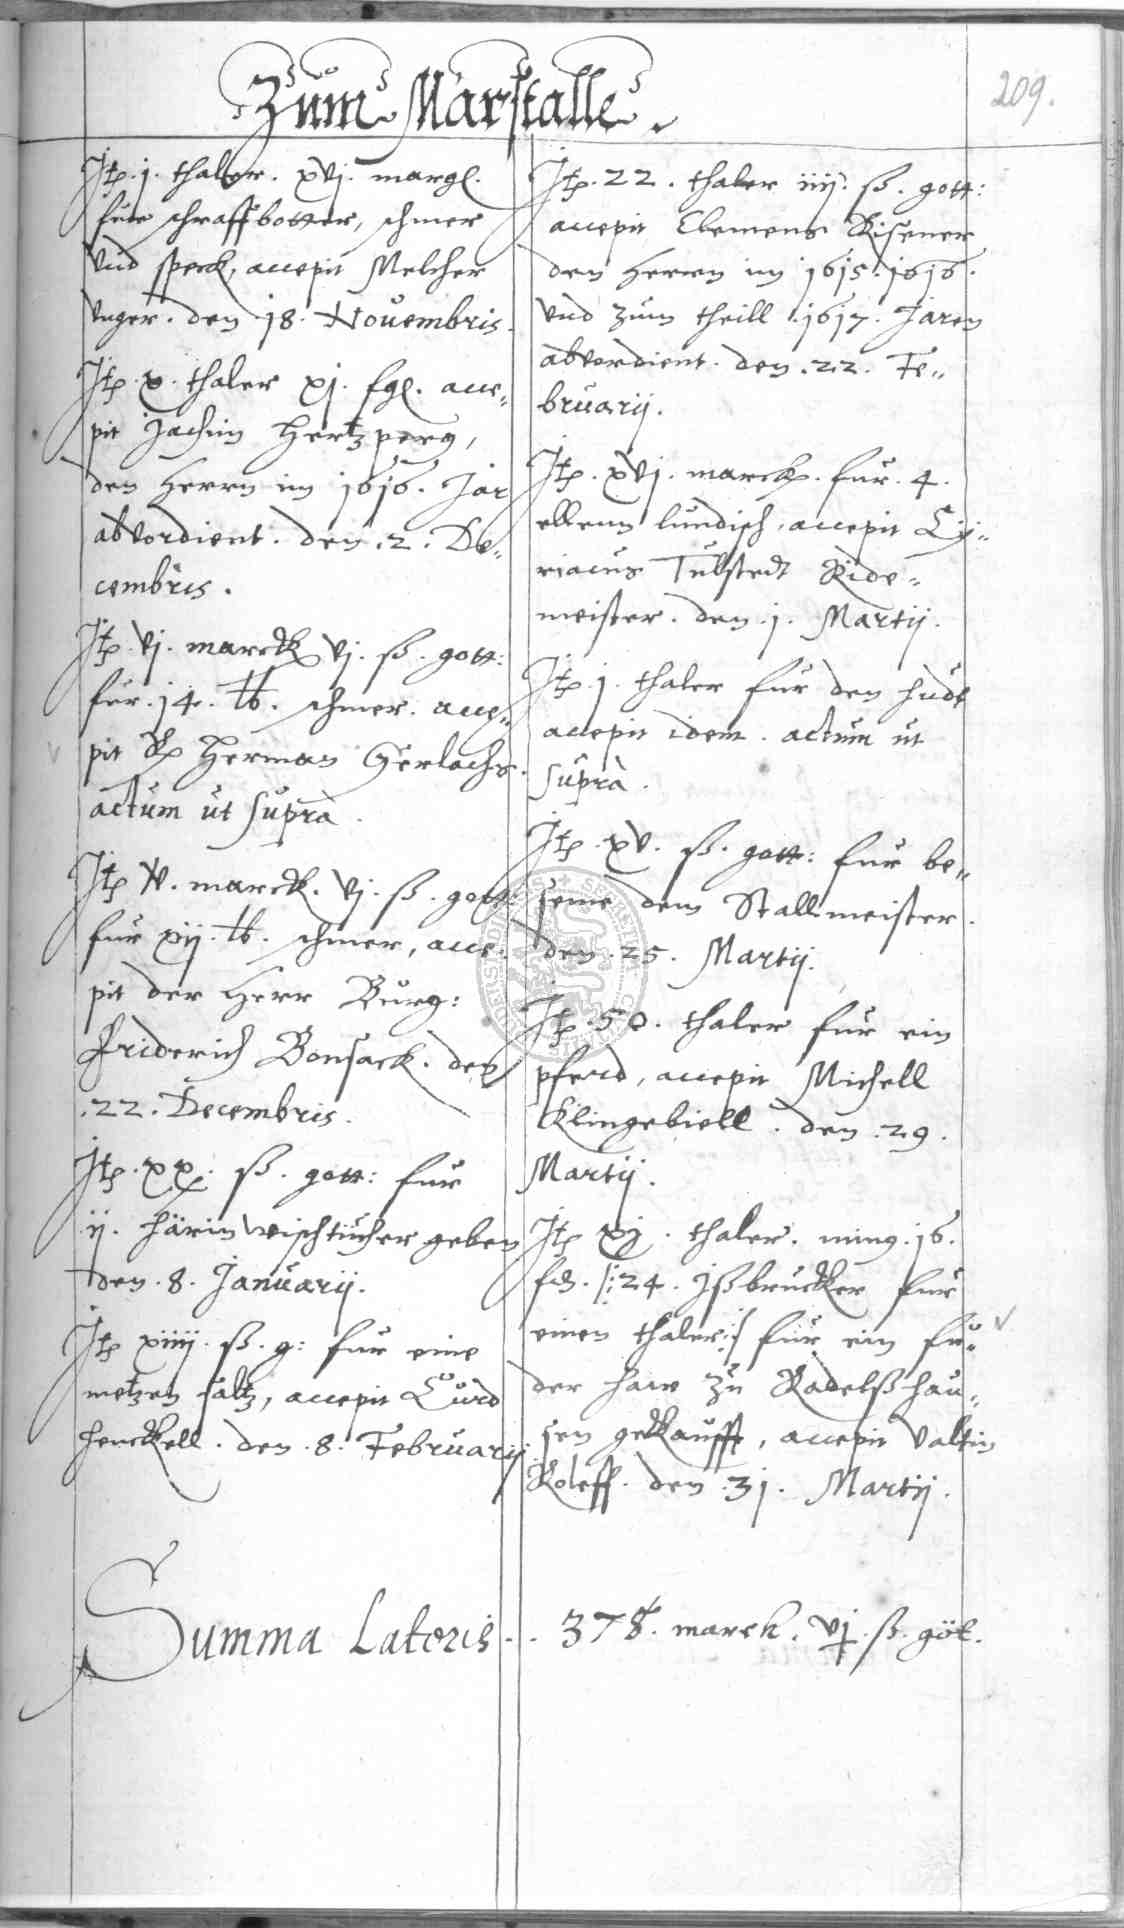 209.
Zum Marstalle.
Itp. j. thaler. xvj. margl.
fur schaffbotter, schmer
vnd speck, accepit Melcher
Vnger. den 18. Nouembris.
Itp. x. thaler xj. fgl. acce„
pit Jachim Hertzperg,
den Herrn im 1616. Jar
abverdient. den .2. De„
cembris.
Itp. vj. marck vj. ß. gott:
fur .14. lb. schmer. acce„
pit Herman Gerlachs.
actum ut supra.
Itp v. marck. vj. ß. gott:
fur xij. lb. schmer, acce.
pit der Herr Burg:
Friderich Bonsack. den
.22. Decembris.
Itp. xx. ß. gott: fur
ij. härin wischtücher geben
den .8. Januarij.
Itp xiiij. ß. g: fur eine
metzen saltz, accepit Curd
Henckell. den .8. Februarij
Itp. 22. thaler iiij. ß. gott:
accepit Clemens Risener
den Herrn im 1615. 1616.
vnd zum theill .1617. Jaren
abverdient. den .22. Fe„
bruarij.
Itp. xvj. marck. fur .4.
ellenn lundisch, accepit Cy„
riacus Tulstedt Ride„
meister. den .j. Martij.
Itp. j. thaler fur den hudt
accepit idem. actum ut
supra.
Itp. xv. ß. gott: fur be„
seme dem Stallmeister.
den .25. Martij.
Itp. 50. thaler fur ein
pferd, accepit Michell
Klingebiell. den .29.
Martij.
Itp xj. thaler. min9 .16.
ſ: 24. Jßbrucker fur
einen thaler :ſ fur ein fu„
der haw zu Radelßhau„
sen gekaufft, accepit Valtin
Roleff. den .31. Martij.
Summa Lateris . . 378. marck. vj. ß. göt.